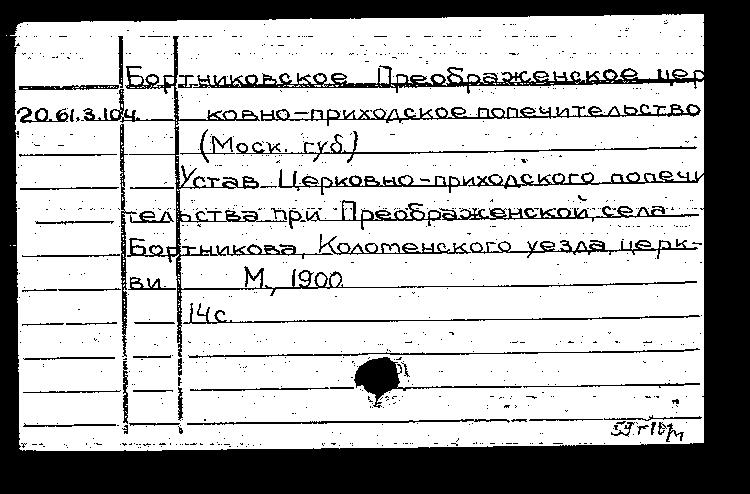 Бортниковское Преображенское цер
20.61.3.104. ковно-приходское попечительство
(Моск. губ.)
Устав Церковно-приходского попечи
тельства при Преображенской, села
Бортникова, Коломенского уезда, церк-
ви. М., 1900
14с.